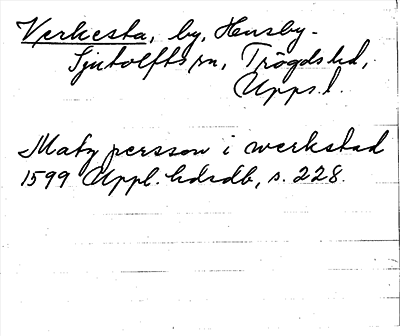 Verkesta, by, Husby-
Sjutolfts sn, Trögds hd,
Upps. l.
Matz persson i werkstad
1599 Uppl. hdrdb, s. 228.